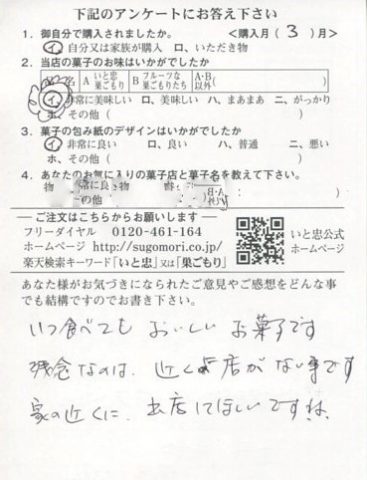 下記のアンケートにお答え下さい
1. 御自分で購入されましたか。 <購入月( 3 )月>
イ、自分又は家族が購入 ロ、いただき物
2. 当店の菓子のお味はいかがでしたか
名 A いと忠巣ごもり B フルーツな巣ごもりたち A・B以外( )
イ、非常に美味しい ロ、美味しい ハ、まあまあ ニ、がっかり
ホ、その他( )
3. 菓子の包み紙のデザインはいかがでしたか
イ、非常に良い ロ、良い ハ、普通 ニ、悪い
ホ、その他( )
4. あなたのお気に入りの菓子店と菓子名を教えて下さい。
─ ご注文はこちらからお願いします ─
フリーダイヤル 0120-461-164
ホームページ http://sugomori.co.jp/
楽天検索キーワード「いと忠」又は「巣ごもり」
いと忠公式
ホームページ
あなた様がお気づきになられたご意見やご感想をどんな事
でも結構ですのでお書き下さい。
いつ食べても おいしい お菓子です
残念なのは、近くに店がない事です
家の近くに 出店してほしいですね。